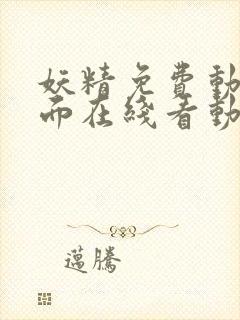 妖精免費動
而在綫看動
邁騰